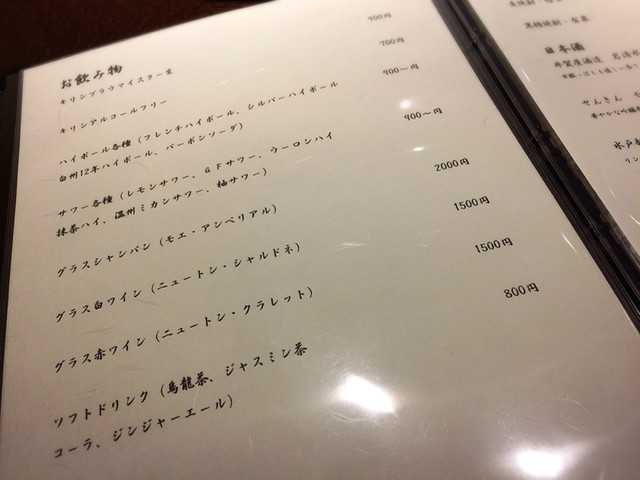 お飲み物
キリンブラウマイスター生 900円
キリンアルコールフリー 700円
ハイボール各種（フレンチハイボール、シルバーハイボール 900〜円
白州12年ハイボール、バーボンソーダ）
サワー各種（レモンサワー、GFサワー、ウーロンハイ 900〜円
抹茶ハイ、温州ミカンサワー、柚サワー）
グラスシャンパン（モエ・アンペリアル） 2000円
グラス白ワイン（ニュートン・シャルドネ） 1500円
グラス赤ワイン（ニュートン・クラレット） 1500円
ソフトドリンク（烏龍茶、ジャスミン茶 800円
コーラ、ジンジャーエール）
日本酒
せんきん